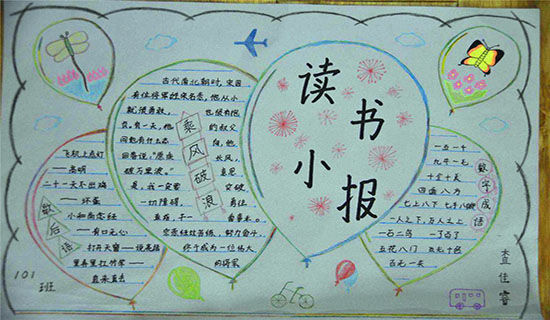 读书
小报
古代南北朝时,宋国
有位将军姓宗名悫,他从小
就很勇敢, 也很有抱
负。有一天,他 的叔父
问他有什么志 向,他
回答说:“愿乘 长风,
破万里浪。” 意思
是,我一定要 突破
一切障碍, 勇往
直前,干一 番事业。
宗悫经过苦练,努力奋斗,
终于成为一位伟大
的将军
乘风破浪
飞机上点灯
——高明
二十一天不出鸡
——坏蛋
小和尚念经
——有口无心
打开天窗——说亮话
里弄里扛竹竿——
直来直去
歇后语
一五一十
九牛一毛
十全十美
四面八方
七上八下 七手八脚
一人之下,万人之上
一石二鸟 一了百了
五花八门 五光十色
数字成语
101
班
查佳睿